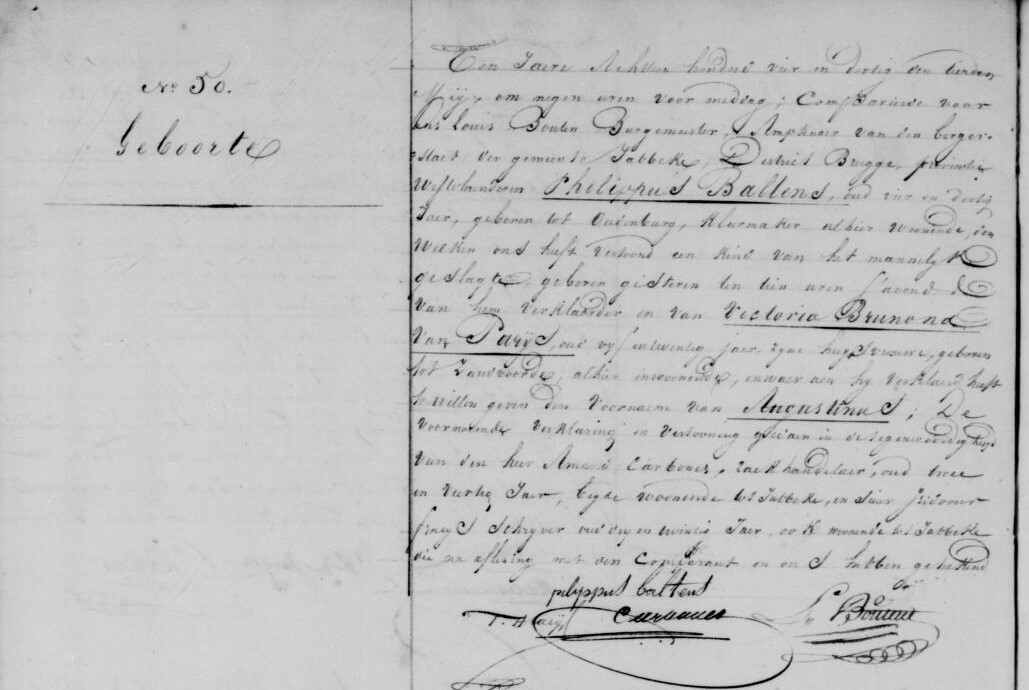 No 50.
Geboorte
Ten Jaere Achttien hondert vier en dertig den tienden
Meij, om negen uren voor middag; Compareerde voor
ons Louis Bouten Burgemeester, Amptenaer van den burger-
=staet der gemeente Jabbeke, District Brugge, provintie
Westvlanderen Philippus Baltens, oud vier en dertig
Jaer, geboren tot Oudenburg, Kleermaker alhier woonende, den
welken ons heeft vertoond een kind van het mannelyk
geslagte, geboren gisteren ten tien uren s'avonds
van hem verklaerder en van Victoria Brunona
Van Parijs, oud vyf en twintig jaer, zyne huysvrouwe, geboren
tot Zandvoorde, alhier inwoonende, en waer aen hy verklaerd heeft
te willen geven den voornaem van Augustinus; De
voornoemde verklaring en vertooning gedaen in de tegenwoordigheyd
van den heer Amand Carbonez, zaekhandelaer, oud twee
en veertig Jaer, woonende tot Jabbeke, en Sieur
schryver oud dry en twintig Jaer, ook woonende tot Jabbeke
die na aflezing met den Comparant en ons hebben geteekend
pilyppus baltens
L. Bouten